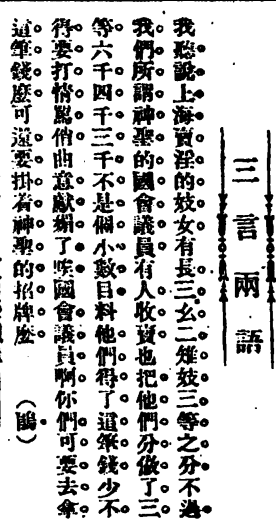 三言兩語
我聽說上海賣淫的妓女有長三幺二雉妓三等之分不過
我們所謂神聖的國會議員有人收賣也把他們分做了三
等六千四千三千不是個小數目料他們得了這筆錢少不
得要打情罵俏曲意獻媚了唉國會議員啊你們可要去拿
這筆錢麼可還要掛着神聖的招牌麼
(鵑)